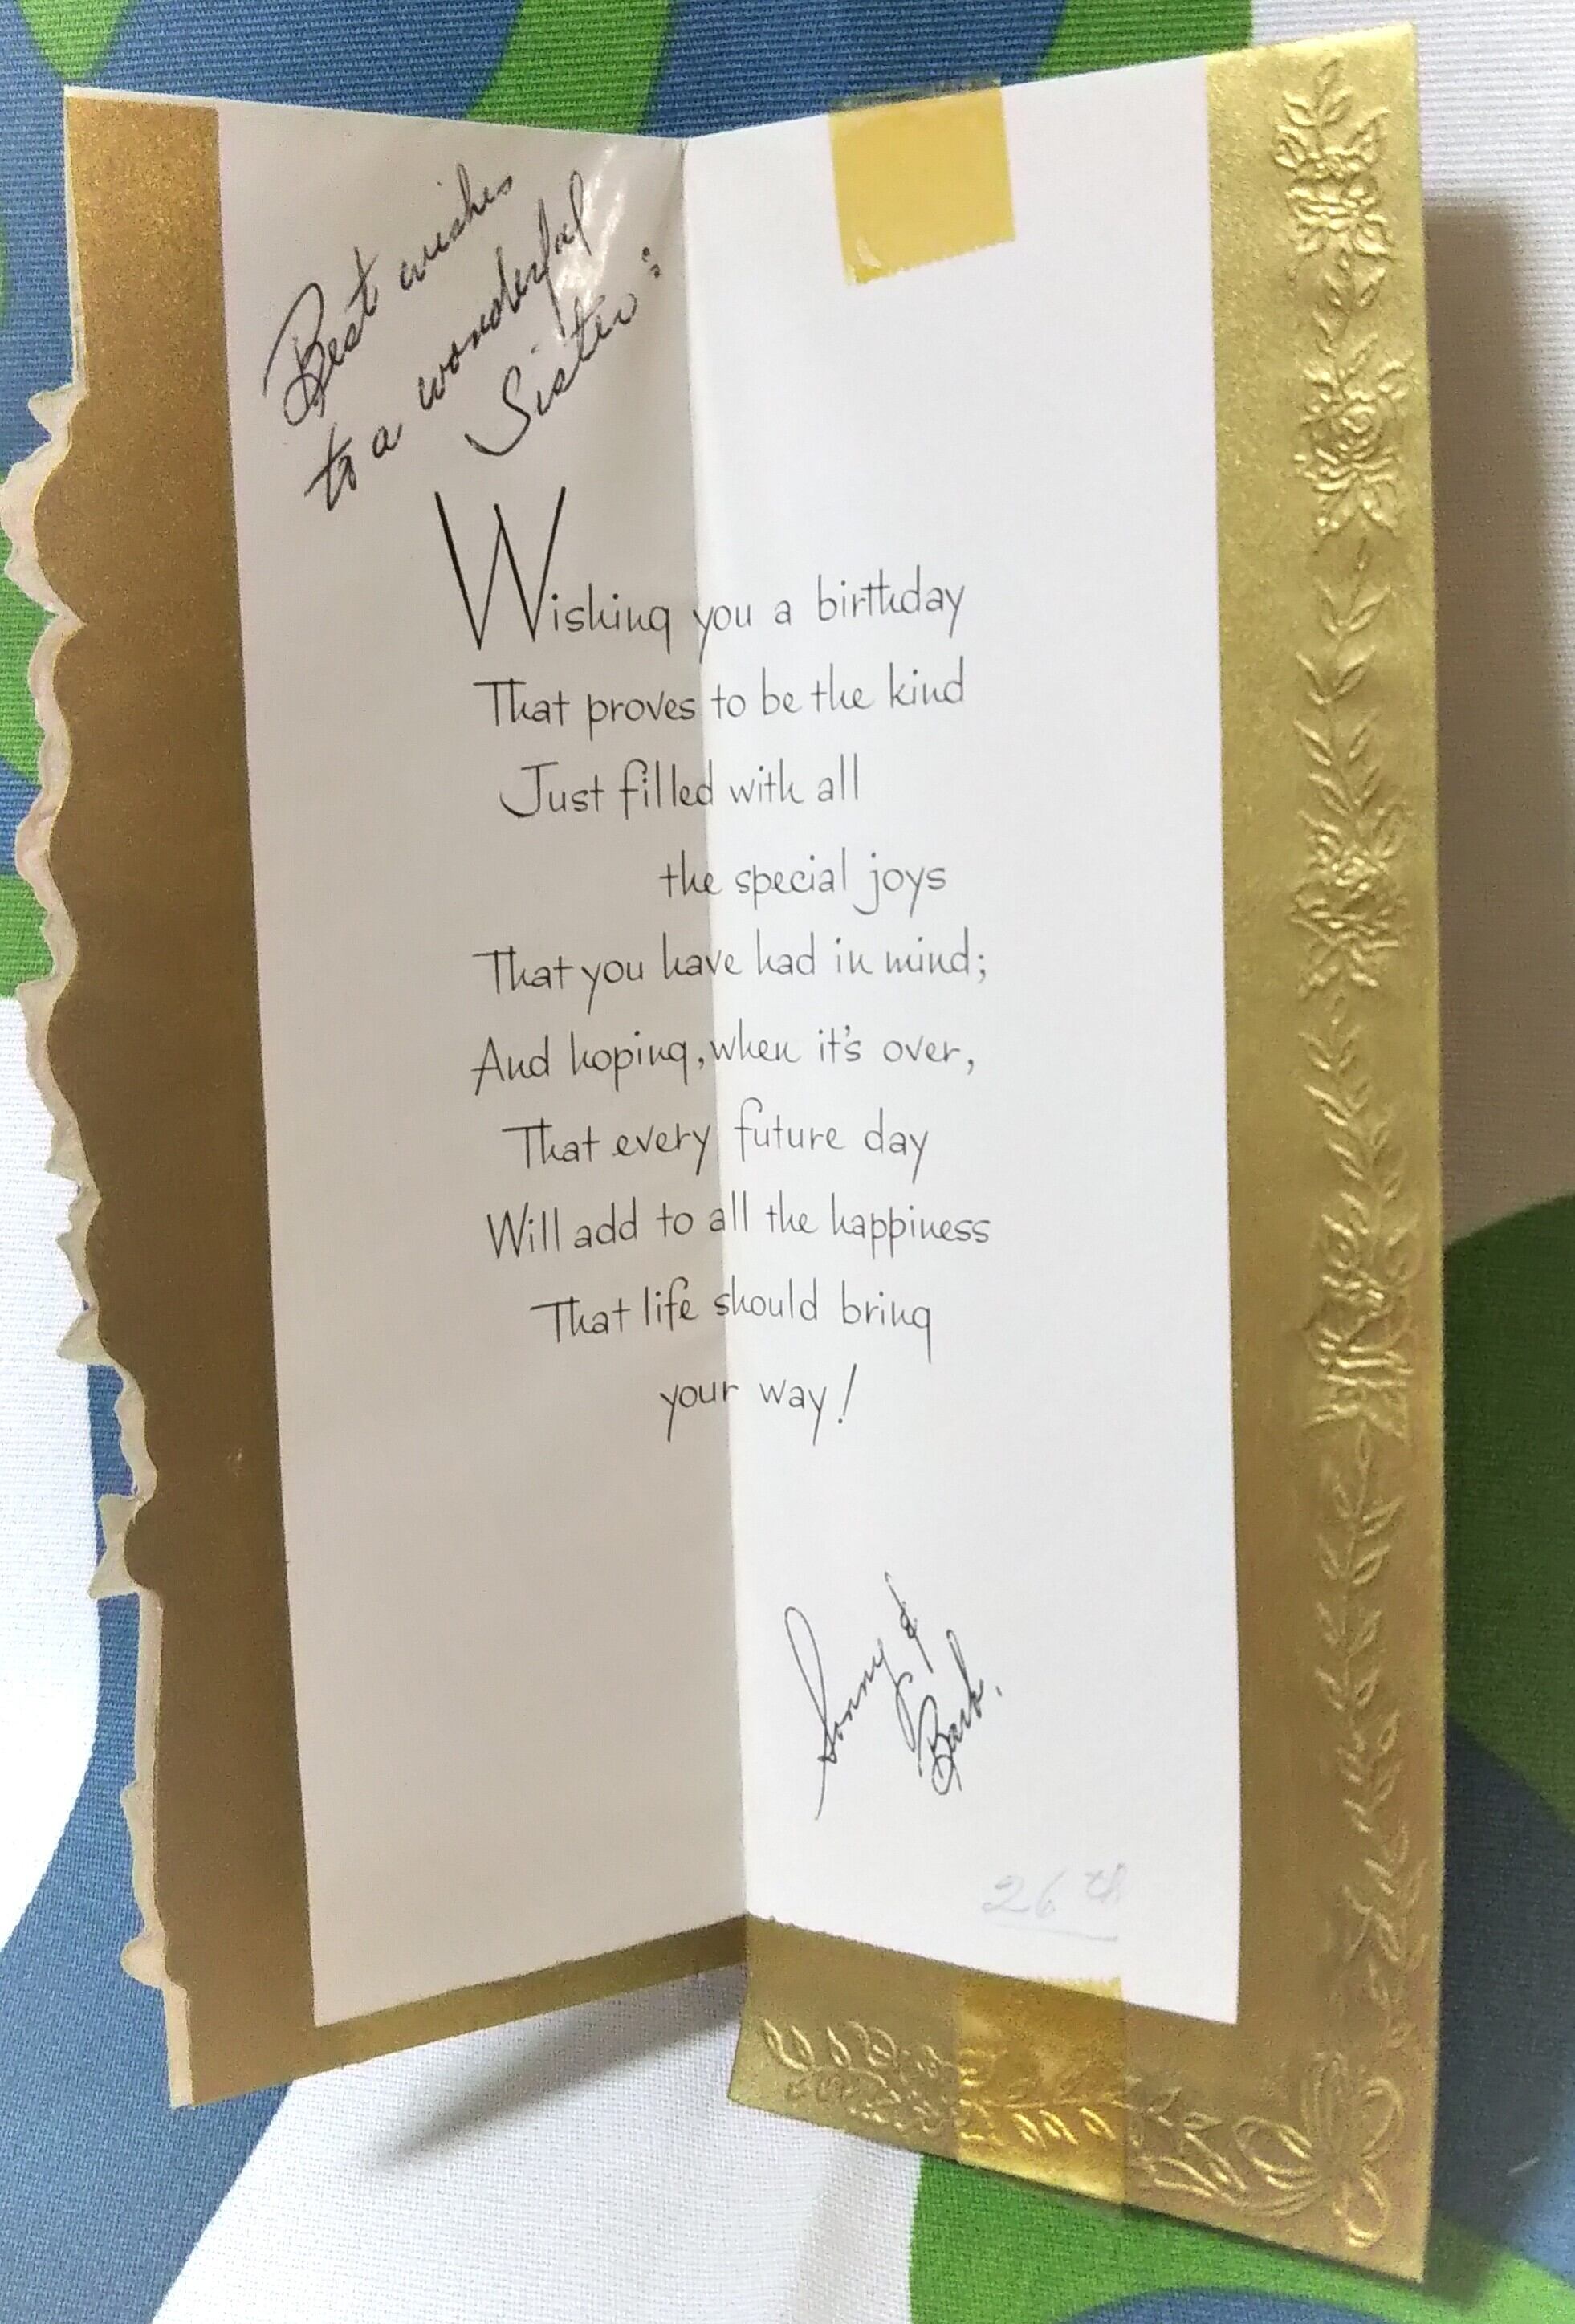 Best wishes
to a wonderful
Sister:
Wishing you a birthday
That proves to be the kind
Just filled with all
the special joys
That you have had in mind;
And hoping, when it's over,
That every future day
Will add to all the happiness
That life should bring
your way!
Sonny &
Barb.
26th